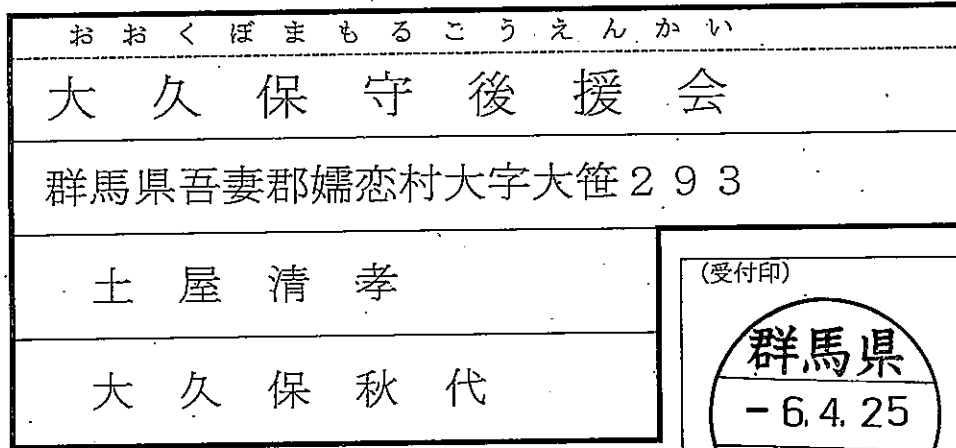 おおくぼまもるこうえんかい
大久保守後援会
群馬県吾妻郡嬬恋村大字大笹293
土屋清孝
大久保秋代
(受付印)
群馬県
-6.4.25